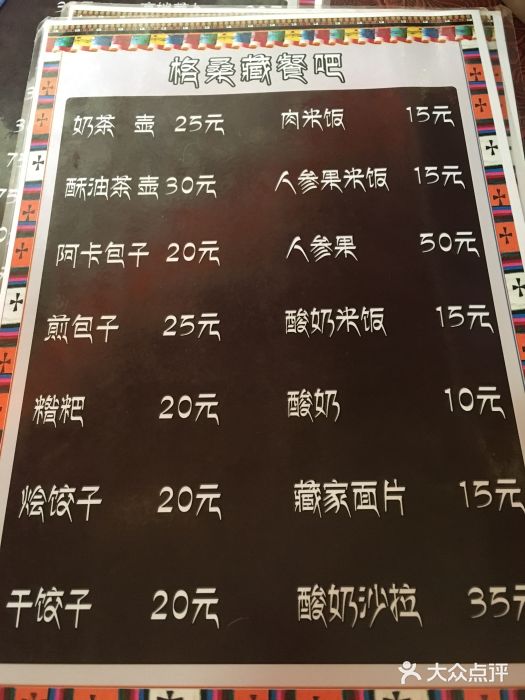 格桑藏餐吧
奶茶 壶 25元 肉米饭 15元
酥油茶 壶 30元 人参果米饭 15元
阿卡包子 20元 人参果 50元
煎包子 25元 酸奶米饭 15元
糌粑 20元 酸奶 10元
烩饺子 20元 藏家面片 15元
干饺子 20元 酸奶沙拉 35元
大众点评